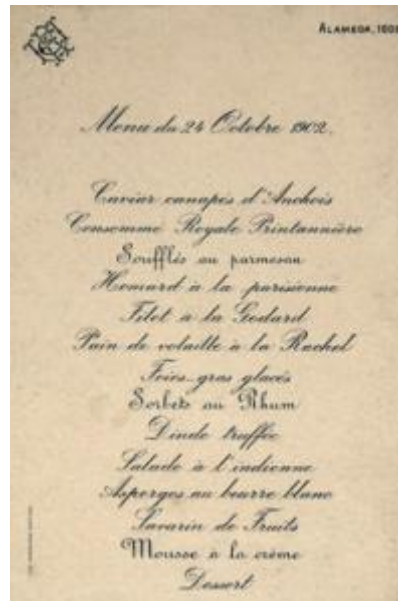 ALAMEDA, 
Menu du 24 Octobre 1902.
Caviar canapés d'Anchois
Consommé Royale Printannière
Soufflés au parmesan
Homard à la parisienne
Filet à la Godard
Pain de volaille à la Rachel
Foies-gras glacés
Sorbets au Rhum
Dinde truffée
Salade à l'indienne
Asperges au beurre blanc
Savarin de Fruits
Mousse à la crème
Dessert